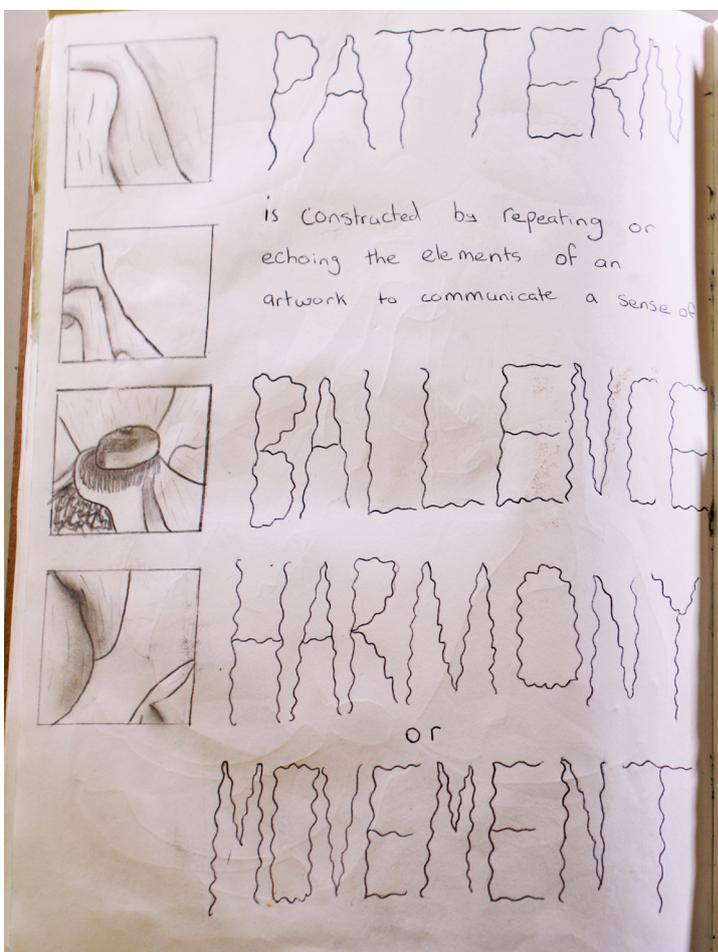 PATTERN
is constructed by repeating or
echoing the elements of an
artwork to communicate a sense of
BALLENCE
HARMONY
or
MOVEMENT